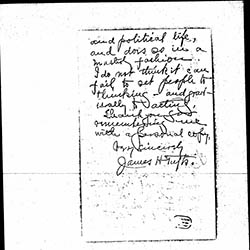 and political life,
and does so in a
fashion.
I do not think it can
fail to set people to
thinking – and grad-
ually to acting.
Thank you for
remembering me
with a personal copy.
Very sincerely
James H. Tufts.